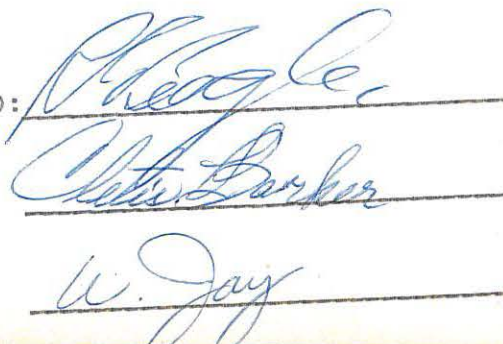 ):
Cletis Barker
W. Jay